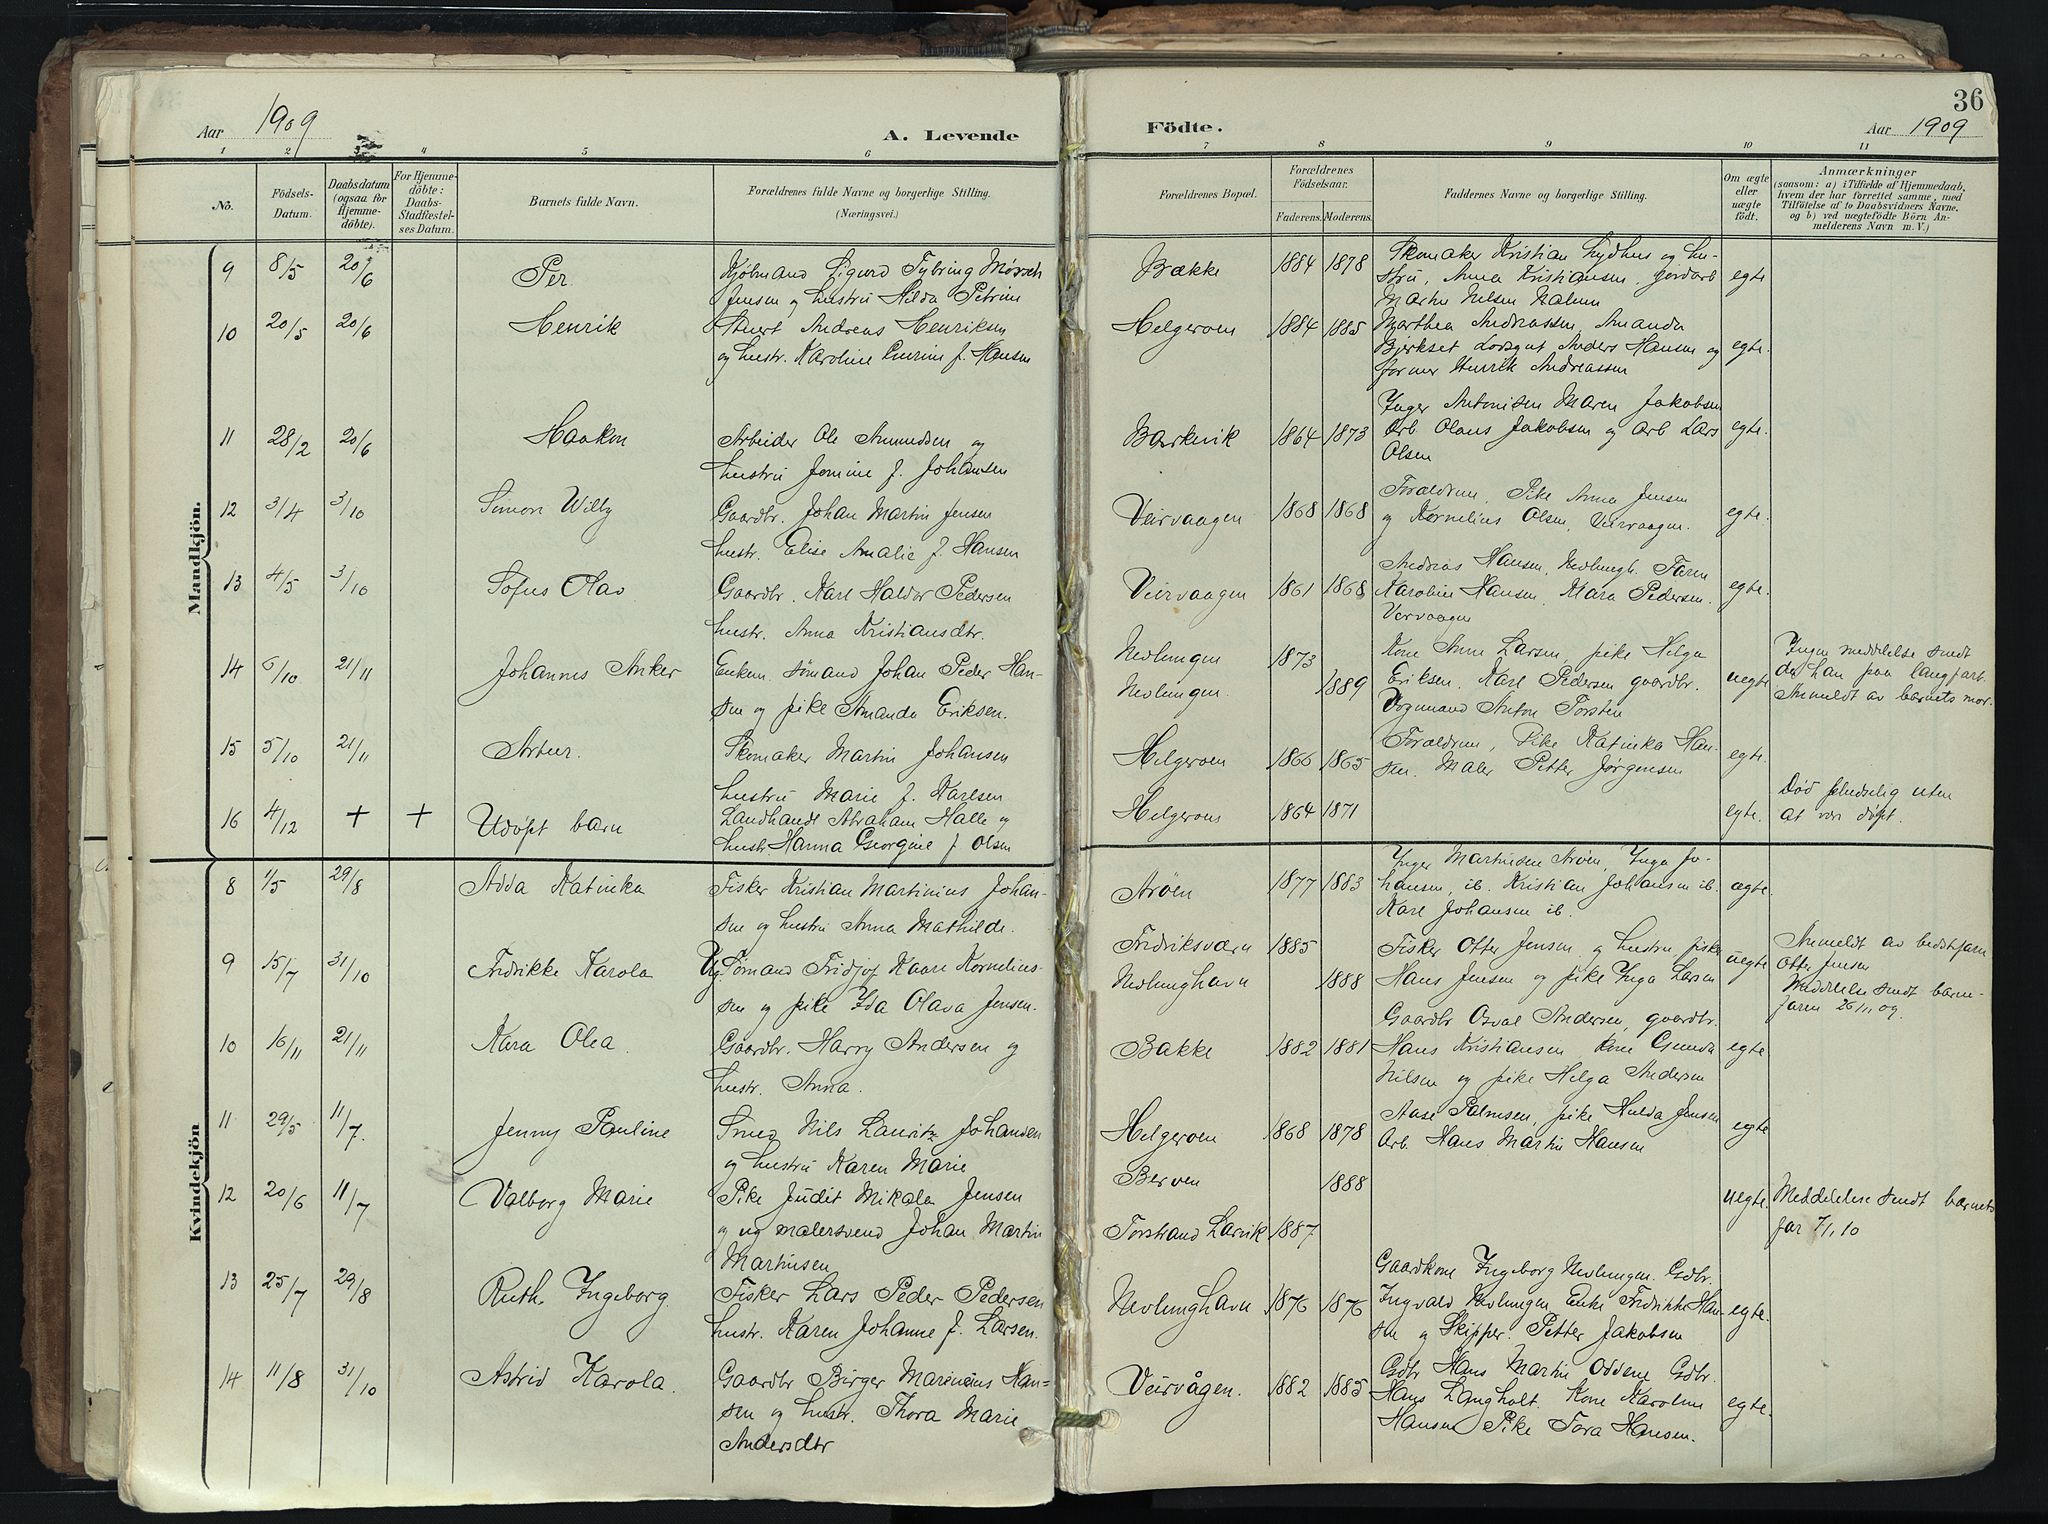 36
Aar 1909
A. Levende
Födte.
Aar 1909
1 2 3 4 5 6 7 8 9 10 11
No.
Födsels-
Datum.
Daabsdatum
(ogsaa for
Hjemme-
döbte).
For Hjemme-
döbte:
Daabs-
Stadfæstel-
ses Datum.
Barnets fulde Navn.
Forældrenes fulde Navne og borgerlige Stilling.
(Næringsvei.)
Forældrenes Bopæl.
Forældrenes
Födselsaar.
Faderens. Moderens.
Faddernes Navne og borgerlige Stilling.
Om ægte
eller
uægte
födt.
Anmærkninger
(saasom: a) i Tilfælde af Hjemmedaab,
hvem der har forrettet samme, med
Tilföielse af to Daabsvidners Navne.
og b) ved uægtefödte Börn An-
melderens Navn m. V.)
Mandkjön.
9 8/5 20/6 Per.
Kjøbmand Sigurd Tybring
Jensen og hustru Hilda Petrine
Bække 1884 1878
Skomaker Kristian Lydhus og hu-
stru, Anna Kristiansen, jordarb
Nilsen
egte
10 20/5 20/6 Henrik
Stuert Andreas Henriksen
og hustr. Karoline f. Hansen
Helgeroen 1884 1885
Marthea Andreassen, Amanda
Bjerkset Losgut Anders Hansen og
former Henrik Andreassen
egte.
11 28/2 20/6 Haakon
Arbeider Ole Amundsen og
hustru Jomine f. Johansen
Barkevik 1864 1873
Inger Antonisen Maren Jakobsen
Arb. Olaus Jakobsen og Arb Lars
Olsen
egte.
12 3/4 3/10 Simon Willy
Gaardbr. Johan Martin Jensen
hustr. Elise Amalie f. Hansen
Veirvaagen 1868 1868
Foræeldrene, Pike Anna Jensen
og Kornelius Olsen, Veirvaagen.
egte.
13 4/5 3/10 Sofus Olav
Gaardbr. Karl Haldor Pedersen
hustr. Anna Kristiansdtr.
Veirvaagen 1861 1868
Andreas Hansen, Nevlungh. Faren
Karoline Hansen, Klara Pedersen.
Vervaagen
egte.
14 6/10 21/11 Johannes Anker
Enkem. sømand Johan Peder Han-
sen og pike Amanda Eriksen.
Nevlungen 1873
Nevlungen. 1889
Kone Anne Larsen, pike Helga
Eriksen. Karl Pedersen gaardbr.
Vognmand Anton Torsten
uegte
Ingen meddelelse sendt
da han paa langfart.
Anmeldt av barnets mor.
15 5/10 21/11 Artur.
Skomaker Martin Johansen
hustru Marie f. Karlsen
Helgeroen 1866 1865
Forældrene, Pike Katinka Han-
sen. Maler Petter Jørgensen
egte.
16 4/12 + + Udøpt barn
Landhandl Abraham Halle og
hustr. Hanna Georgine f Olsen
Helgeroen 1864 1871
egte.
Død pludselig uten
at være døpt.
Kvindekjön
8 1/5 29/8 Adda Katinka
Fisker Kristian Martinius Johan-
sen og hustru Anna Mathilde.
Arøen 1877 1883
Inger Martinsen Arøen, Inga Jo-
hansen, ib. Kristian Johansen ib.
Karl Johansen ib.
ægte
9 15/7 31/10 Fredrikke Karola
Ug. Sømand Fridjof Kaare Kornelius-
sen og pike Ida Olava Jensen.
Fredriksværn 1885
Nevlunghavn 1888
Fisker Otter Jensen og hustru fisker
Hans Jensen og pike Inga Larsen
uegte
Anmeldt av bedstefaren
Otter Jensen
Meddelelse sendt barne-
faren 26/11 09
10 16/11 21/11 Kara Olea.
Gaardbr. Harry Andersen og
hustr. Anna.
Bakke 1882 1881
Gaardbr Osval Andersen, gaardbr.
Hans Kristiansen Kone Gunda
Nilsen og pike Helga Andersen
egte
11 29/5 11/7. Jenny Pauline
Smed Nils Lauritz Johansen
og hustru Karen Marie
Helgeroen 1868 1878
Aase Palmesen, pike Hulda Jensen
Arb. Hans Martin Hansen
egte
12 20/6 11/7 Valborg Marie
Pike Judit Mikala Jensen
og ug malersvend Johan Martin
Martinsen
Berven 1888
Torstrand Larvik 1887
uegte.
Meddelelse sendt barnets
far 7/1, 10
13 25/7 29/8 Ruth Ingeborg.
Fisker Lars Peder Pedersen
hustr. Karen Johanne f. Larsen.
Nevlunghavn 1876 1876
Gaardkone Ingeborg Nevlungen. Gdbr.
Ingvald Nevlungen Enke Fredrikke Han-
sen og Skipper. Petter Jakobsen
egte.
14 11/8 31/10 Astrid Karola.
Gaardbr Birger Marinius Han-
sen og hustr. Thora Marie
Andersdtr
Veirvågen. 1882 1885
Gdbr Hans Martin Oddene Gdbr.
Hans Langholt. Kone Karoline
Hansen Pike Tora Hansen.
egte.